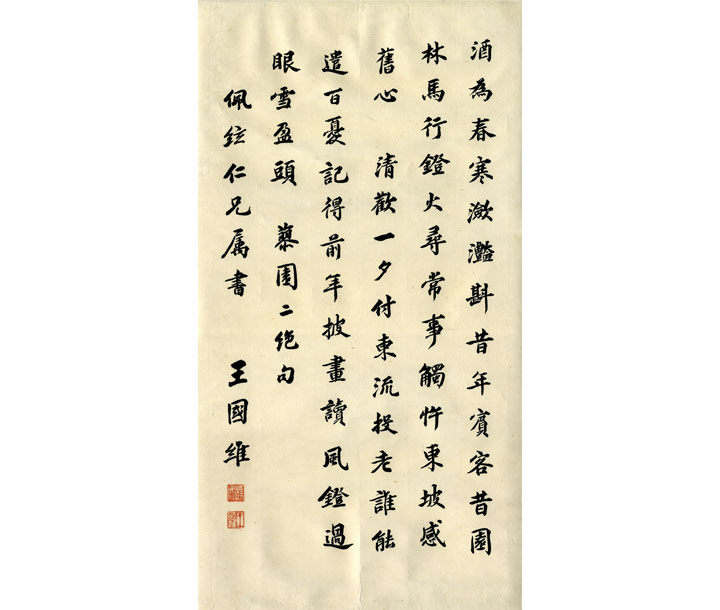 酒為春寒瀲灩斟昔年賓客昔園
林馬行鐙火尋常事觸忤東坡感
舊心 清歡一夕付東流投老誰能
遣百憂記得前年披畫讀風鐙過
眼雪盈頭 園二絶句
佩絃仁兄属書 王國維